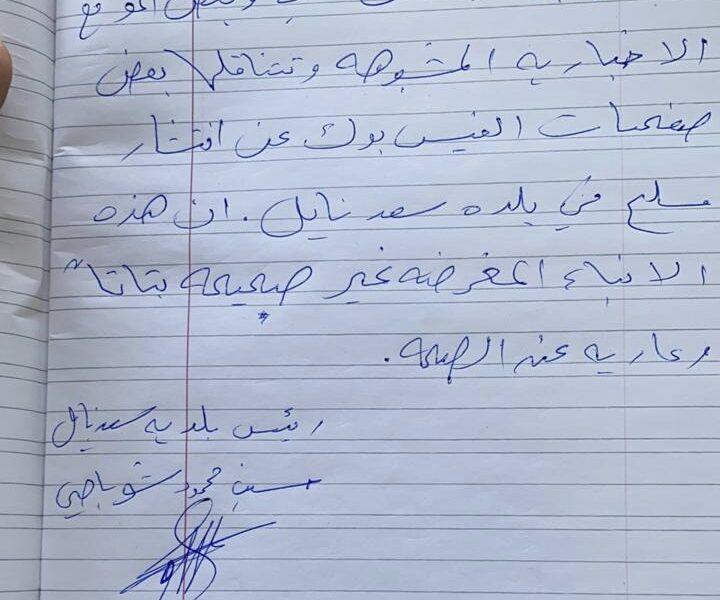 وبعض المواقع
الاخباريه المشبوهه وتتناقلها بعض
صفحات الفيس بوك عن انتشار
مسلح في بلده سعدنايل. ان هذه
الانباء المغرضه غير صحيحه بتاتاً
وعاريه عن الصحه.
رئيس بلديه سعدنايل
حسين محمود شوباصي